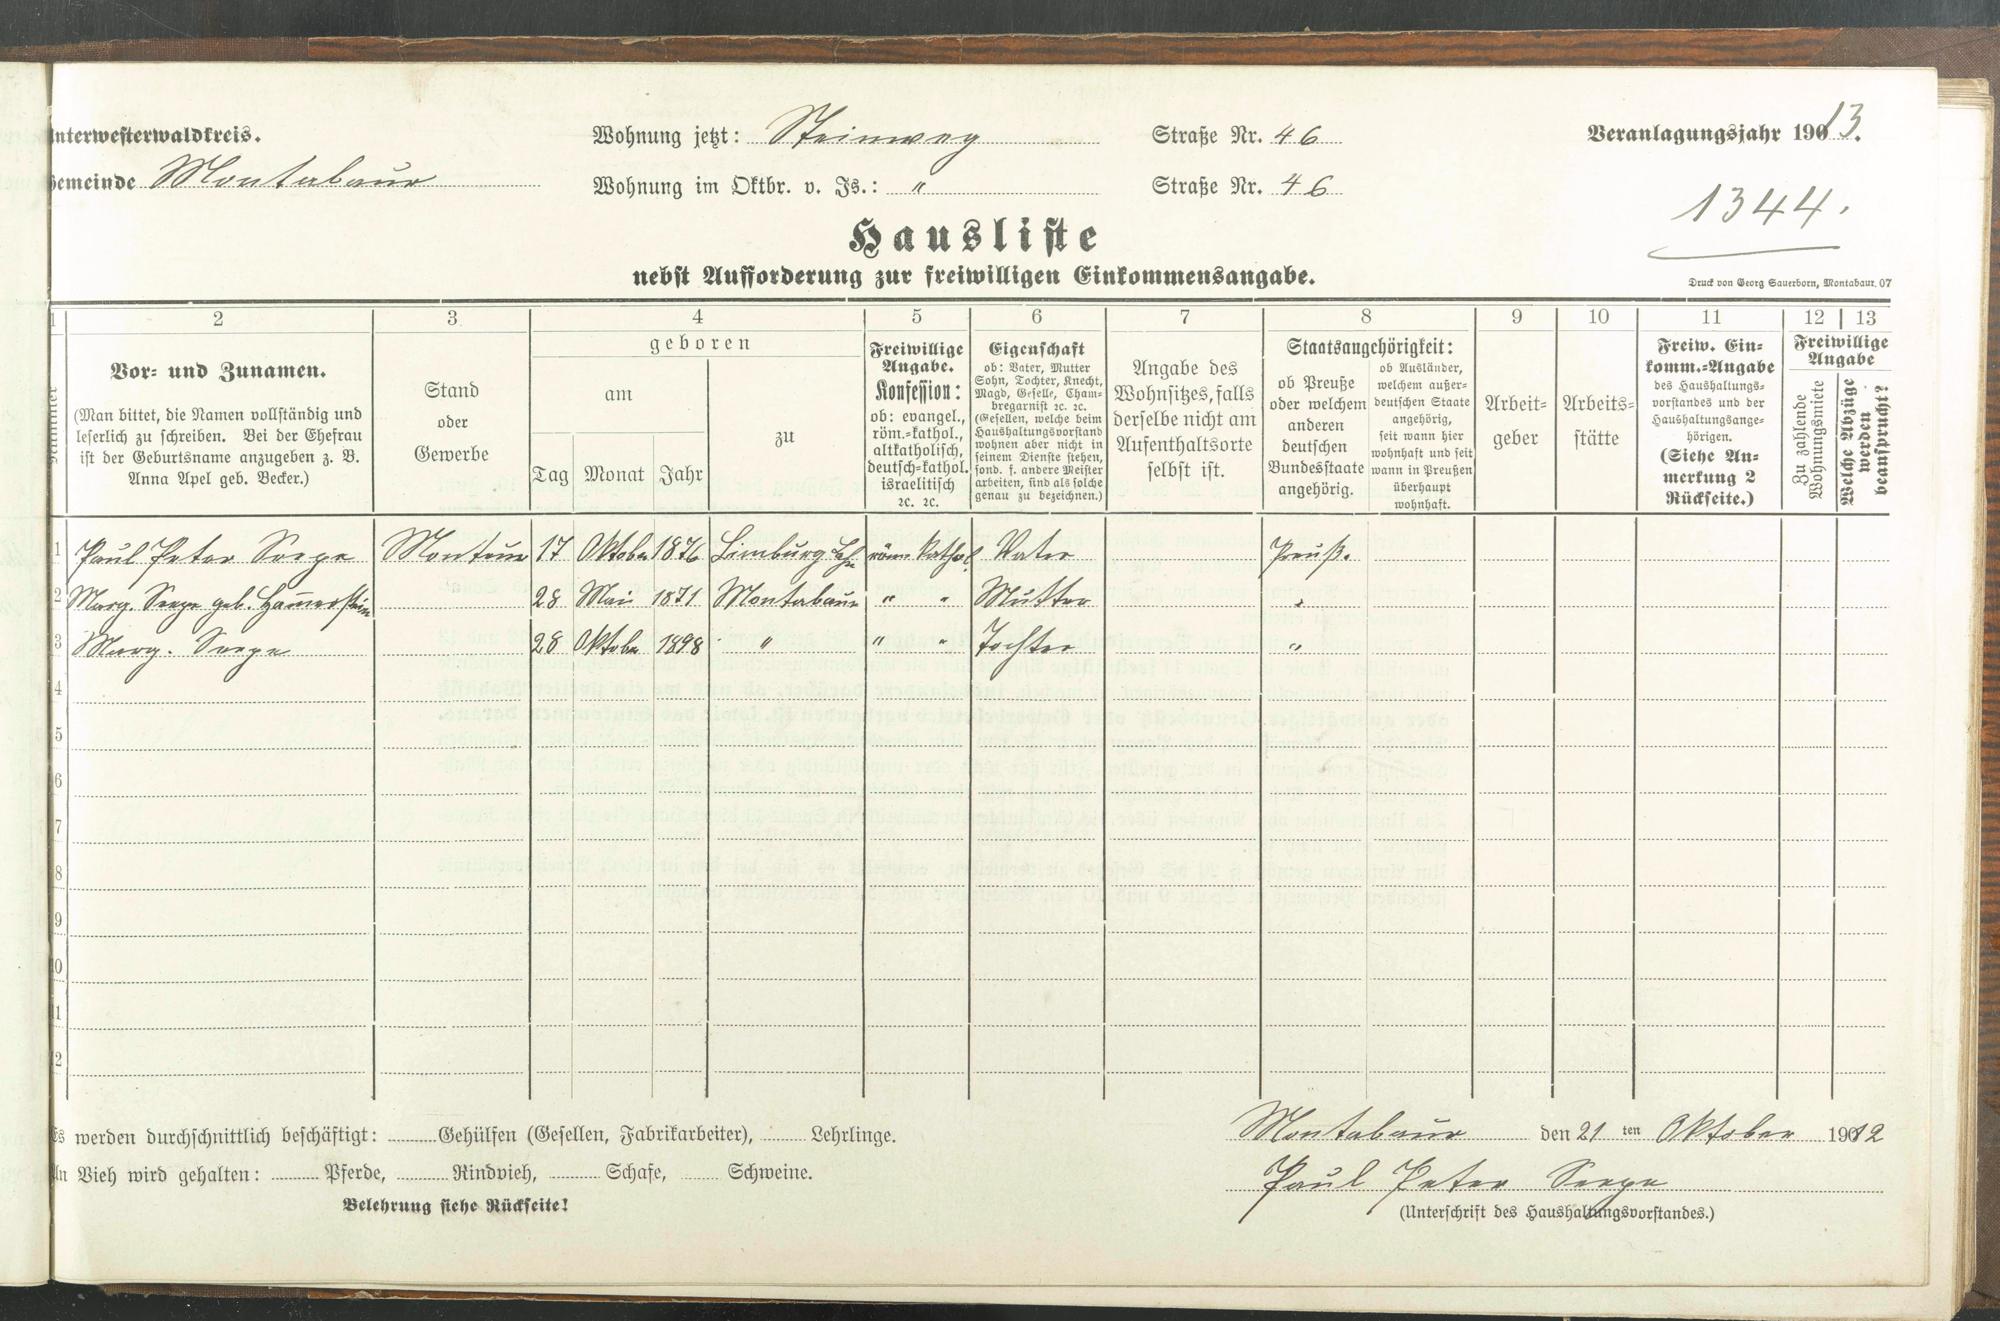 Unterwesterwaldkreis.
Gemeinde Montabaur
Wohnung jetzt: Steinweg Straße Nr. 46
Wohnung im Oktbr. v. Js.: " Straße Nr. 46
Veranlagungsjahr 1913.
1344.
Hausliste
nebst Aufforderung zur freiwilligen Einkommensangabe.
Druck von Georg Sauerborn, Montabaur. 07
1 2 3 4 5 6 7 8 9 10 11 12 13
Nummer
Vor- und Zunamen.
(Man bittet, die Namen vollständig und
leserlich zu schreiben. Bei der Ehefrau
ist der Geburtsname anzugeben z. B.
Anna Apel geb. Becker.)
Stand
oder
Gewerbe
geboren
am
zu
Tag Monat Jahr
Freiwillige
Angabe.
Konfession:
ob: evangel.,
röm.-kathol.,
altkatholisch,
deutsch-kathol.
israelitisch
ꝛc. ꝛc.
Eigenschaft
ob: Vater, Mutter
Sohn, Tochter, Knecht,
Magd, Geselle, Cham-
bregarnist ꝛc. ꝛc.
(Gesellen, welche beim
Haushaltungsvorstand
wohnen aber nicht in
seinem Dienste stehen,
sond. f. andere Meister
arbeiten, sind als solche
genau zu bezeichnen.)
Angabe des
Wohnsitzes, falls
derselbe nicht am
Aufenthaltsorte
selbst ist.
Staatsangehörigkeit:
ob Preuße
oder welchem
anderen
deutschen
Bundesstaate
angehörig.
ob Ausländer,
welchem außer-
deutschen Staate
angehörig,
seit wann hier
wohnhaft und seit
wann in Preußen
überhaupt
wohnhaft.
Arbeit-
geber
Arbeits-
stätte
Freiw. Ein-
komm.-Angabe
des Haushaltungs-
vorstandes und der
Haushaltungsange-
hörigen.
(Siehe An-
merkung 2
Rückseite.)
Freiwillige
Angabe
Zu zahlende
Wohnungsmiete
Welche Abzüge
werden
beansprucht?
1 Paul Peter Seepe Monteur 17 Oktober 1876 Limburg Lhn röm. kathol. Vater Preuß.
2 Marg. Seepe geb. Hammerstein 28 Mai 1871 Montabaur " " Mutter "
3 Marg. Seepe 28 Oktober 1898 " " " Tochter "
4
5
6
7
8
9
10
11
12
Es werden durchschnittlich beschäftigt: Gehülfen (Gesellen, Fabrikarbeiter), Lehrlinge.
An Vieh wird gehalten: Pferde, Rindvieh, Schafe, Schweine.
Belehrung siehe Rückseite!
Montabaur den 21 ten Oktober 1912
Paul Peter Seepe
(Unterschrift des Haushaltungsvorstandes.)